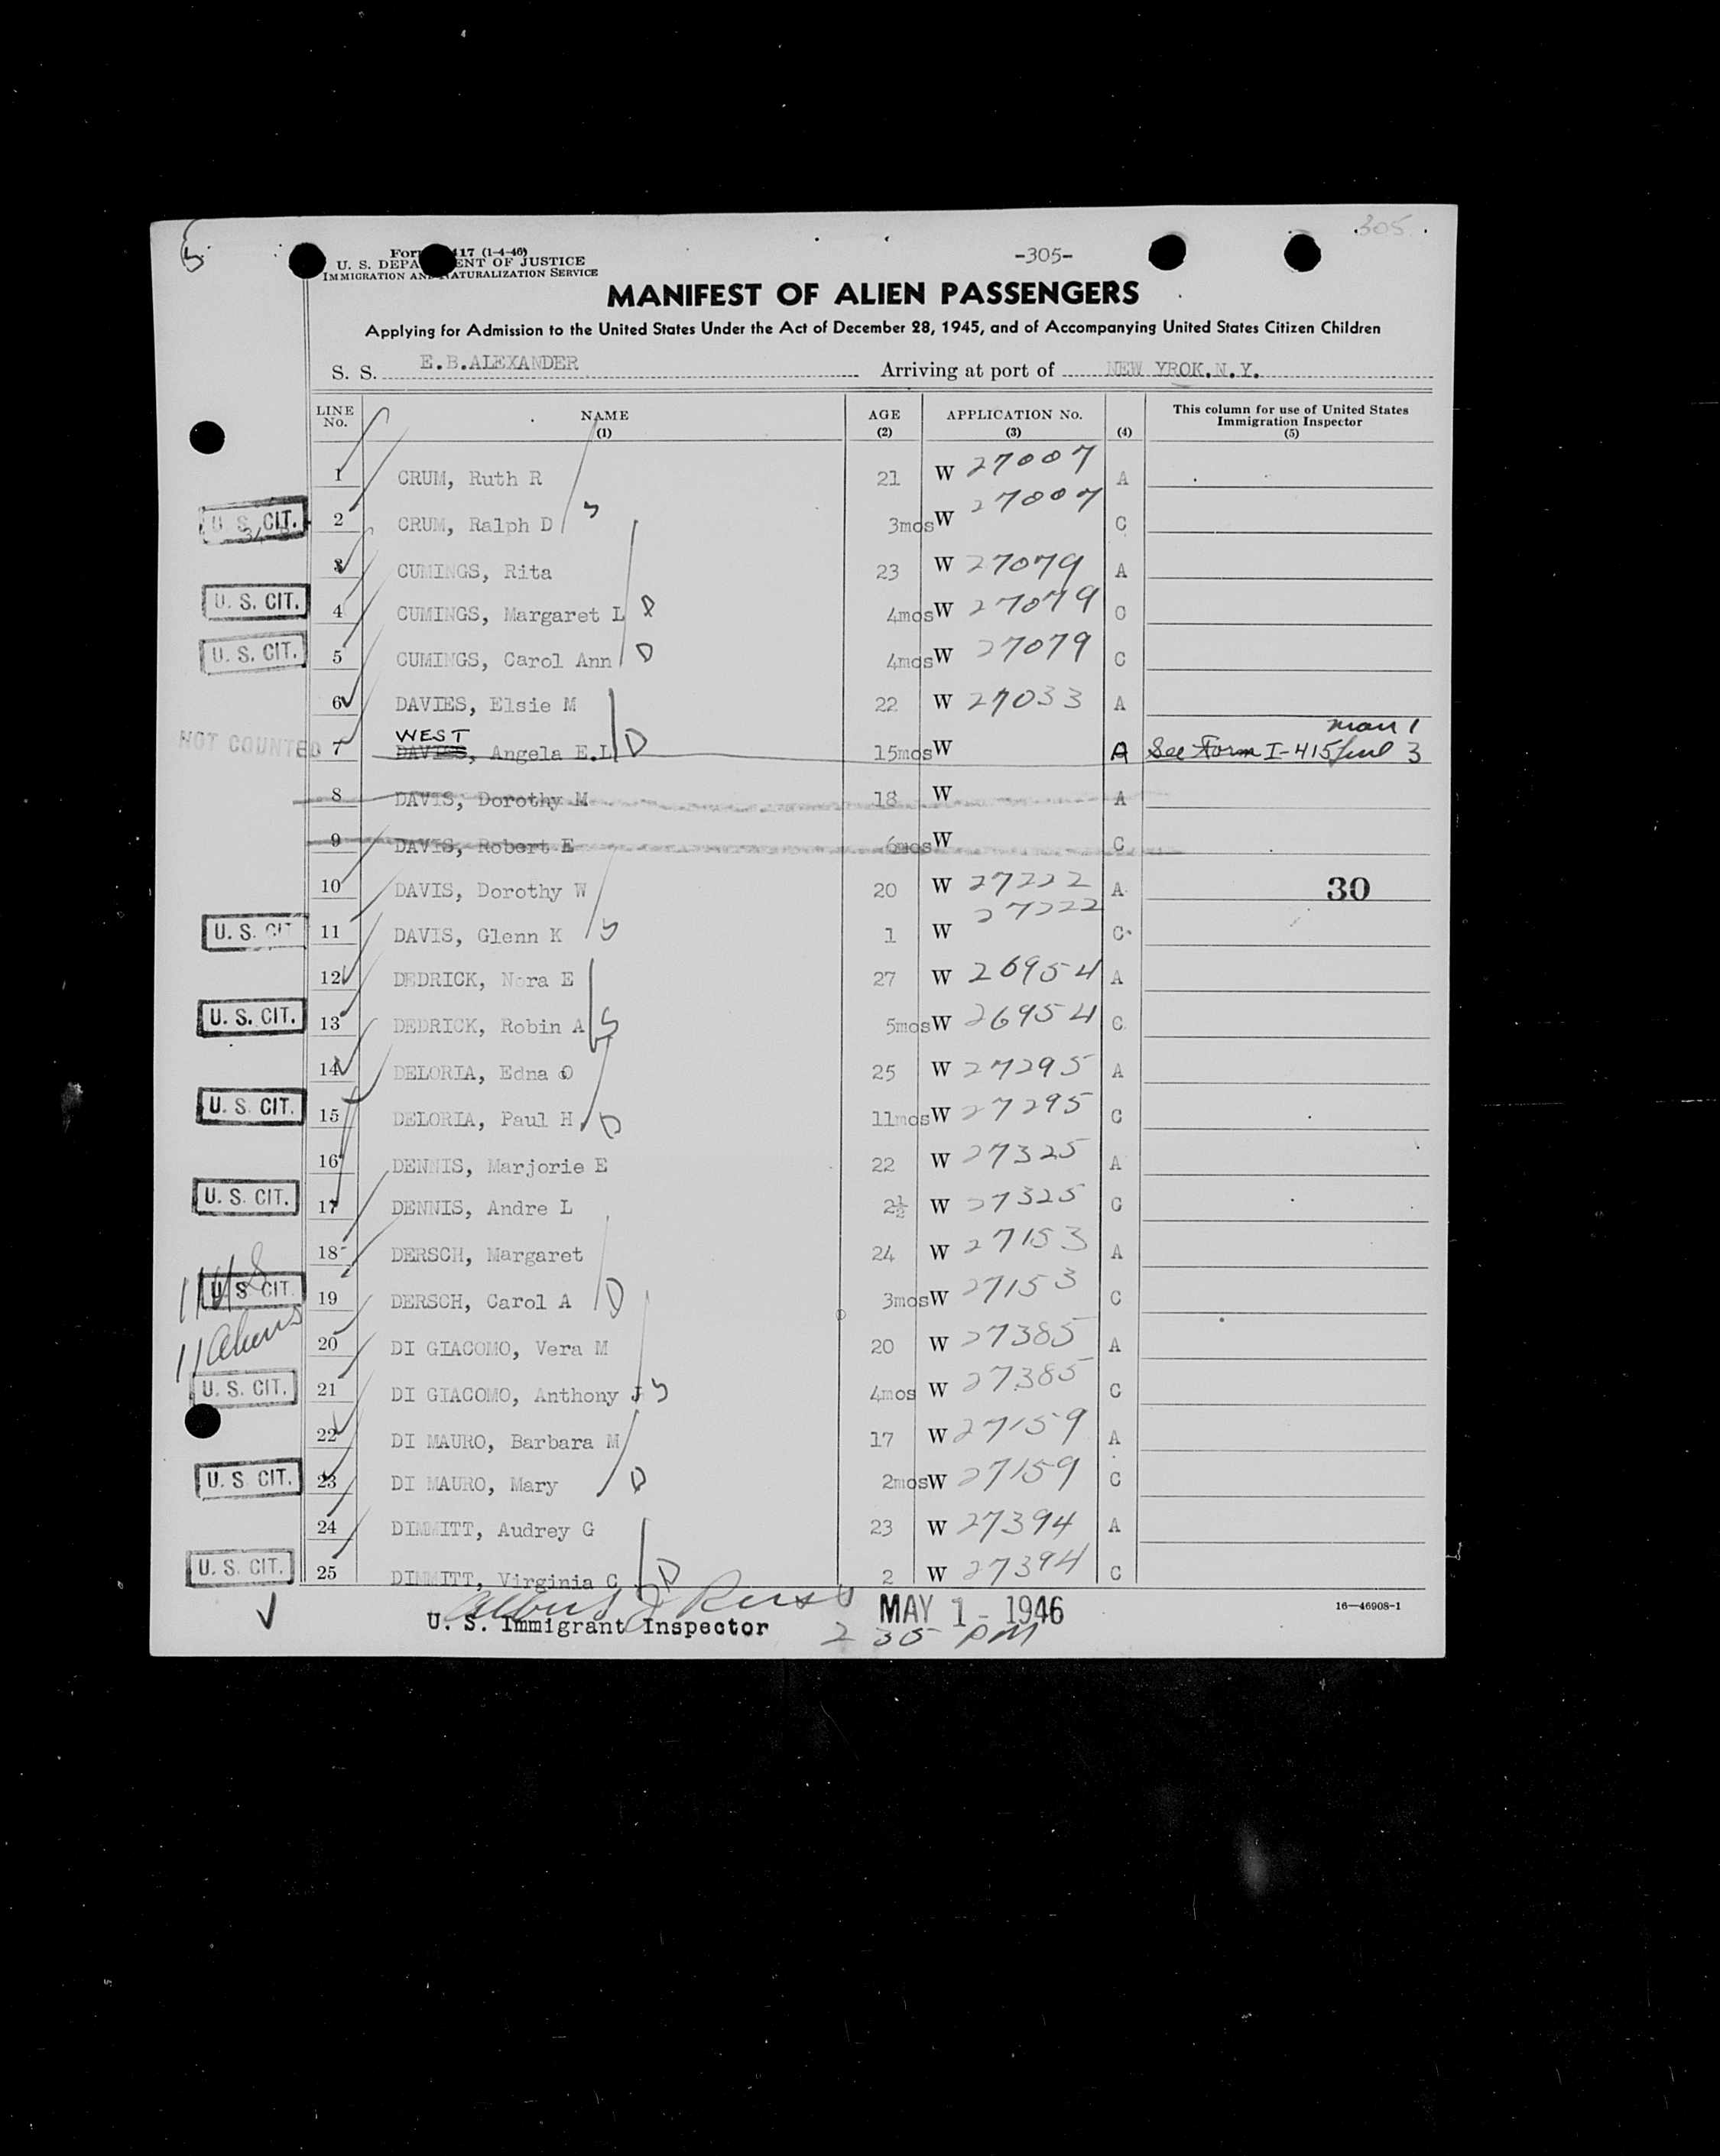 305
Form 417 (1-4-46)
-305-
U. S. DEPA ENT OF JUSTICE
IMMIGRATION AN NATURALIZATION SERVICE
MANIFEST OF ALIEN PASSENGERS
Applying for Admission to the United States Under the Act of December 28, 1945, and of Accompanying United States Citizen Children
S. S. E.B.ALEXANDER Arriving at port of NEW YROK.N.Y.
LINE No. NAME (1) AGE (2) APPLICATION No. (3) (4) This column for use of United States Immigration Inspector (5)
1 CRUM, Ruth R 21 W 27007 A
U. S. CIT. 2 CRUM, Ralph D 3mos W 27007 C
3 CUMINGS, Rita 23 W 27079 A
U. S. CIT. 4 CUMINGS, Margaret L D 4mos W 27079 C
U. S. CIT. 5 CUMINGS, Carol Ann D 4mos W 27079 C
6 DAVIES, Elsie M 22 W 27033 A
WEST
NOT COUNTED 7 DAVIES, Angela E.L D 15mos W A See Form I-415 3
8 DAVIS, Dorothy M 18 W A
9 DAVIS, Robert E 6mos W C
10 DAVIS, Dorothy W 20 W 27222 A 30
U. S. CIT 11 DAVIS, Glenn K S 1 W 27222 C
12 DEDRICK, Nora E 27 W 26954 A
U. S. CIT. 13 DEDRICK, Robin A S 5mos W 26954 C
14 DELORIA, Edna O 25 W 27295 A
U. S. CIT. 15 DELORIA, Paul H D 11mos W 27295 C
16 DENNIS, Marjorie E 22 W 27325 A
U. S. CIT. 17 DENNIS, Andre L 2½ W 27325 C
18 DERSCH, Margaret 24 W 27153 A
U. S. CIT 19 DERSCH, Carol A D 3mos W 27153 C
11 aliens
20 DI GIACOMO, Vera M 20 W 27385 A
U. S. CIT. 21 DI GIACOMO, Anthony J S 4mos W 27385 C
22 DI MAURO, Barbara M 17 W 27159 A
U. S. CIT. 23 DI MAURO, Mary D 2mos W 27159 C
24 DIMMITT, Audrey G 23 W 27394 A
U. S. CIT. 25 DIMMITT, Virginia C D 2 W 27394 C
16—46908-1
U. S. Immigrant Inspector MAY 1 - 1946
2 35 PM